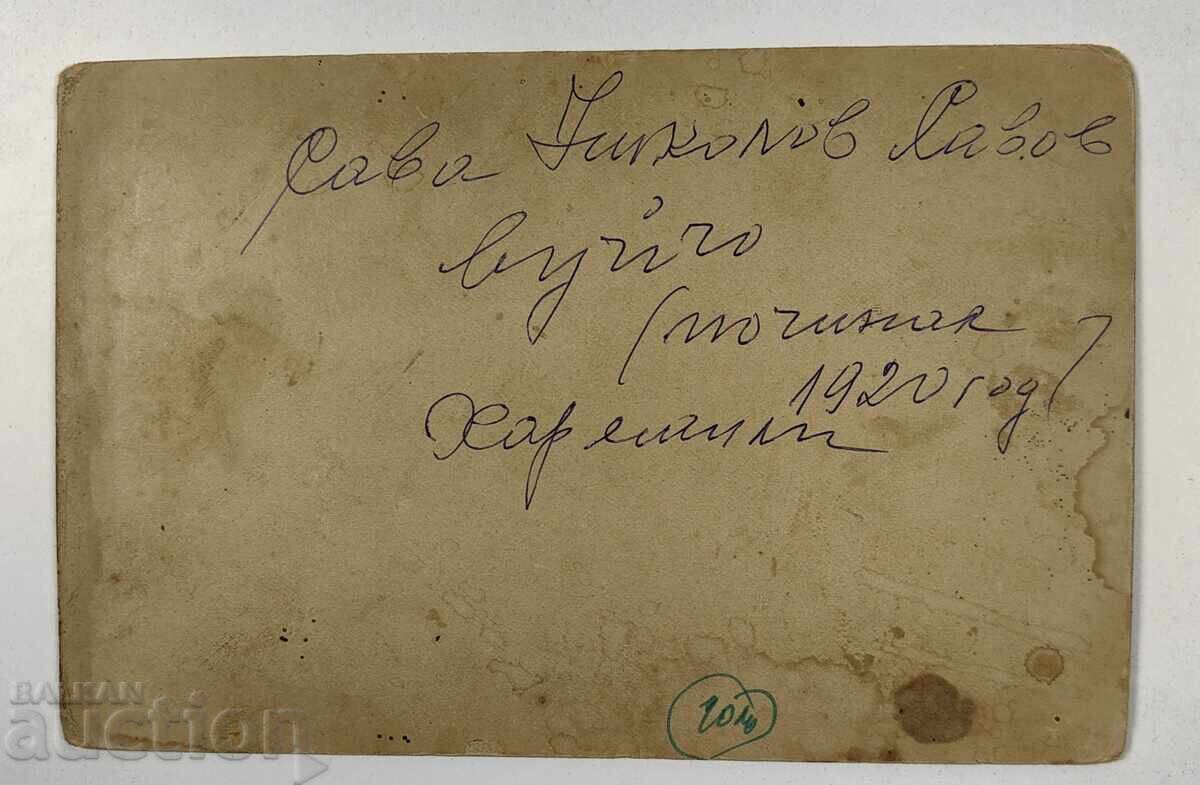 Сава Николов Савов
вуйчо
(починал
1920 год)
Харманли
BALKAN
auction